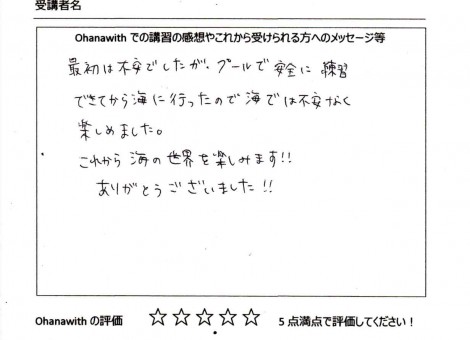 受講者名
Ohanawith での講習の感想やこれから受けられる方へのメッセージ等
最初は不安でしたが、プールで安全に練習
できてから海に行ったので海では不安なく
楽しめました。
これから海の世界を楽しみます!!
ありがとうございました!!
Ohanawith の評価 ☆☆☆☆☆ 5点満点で評価してください!